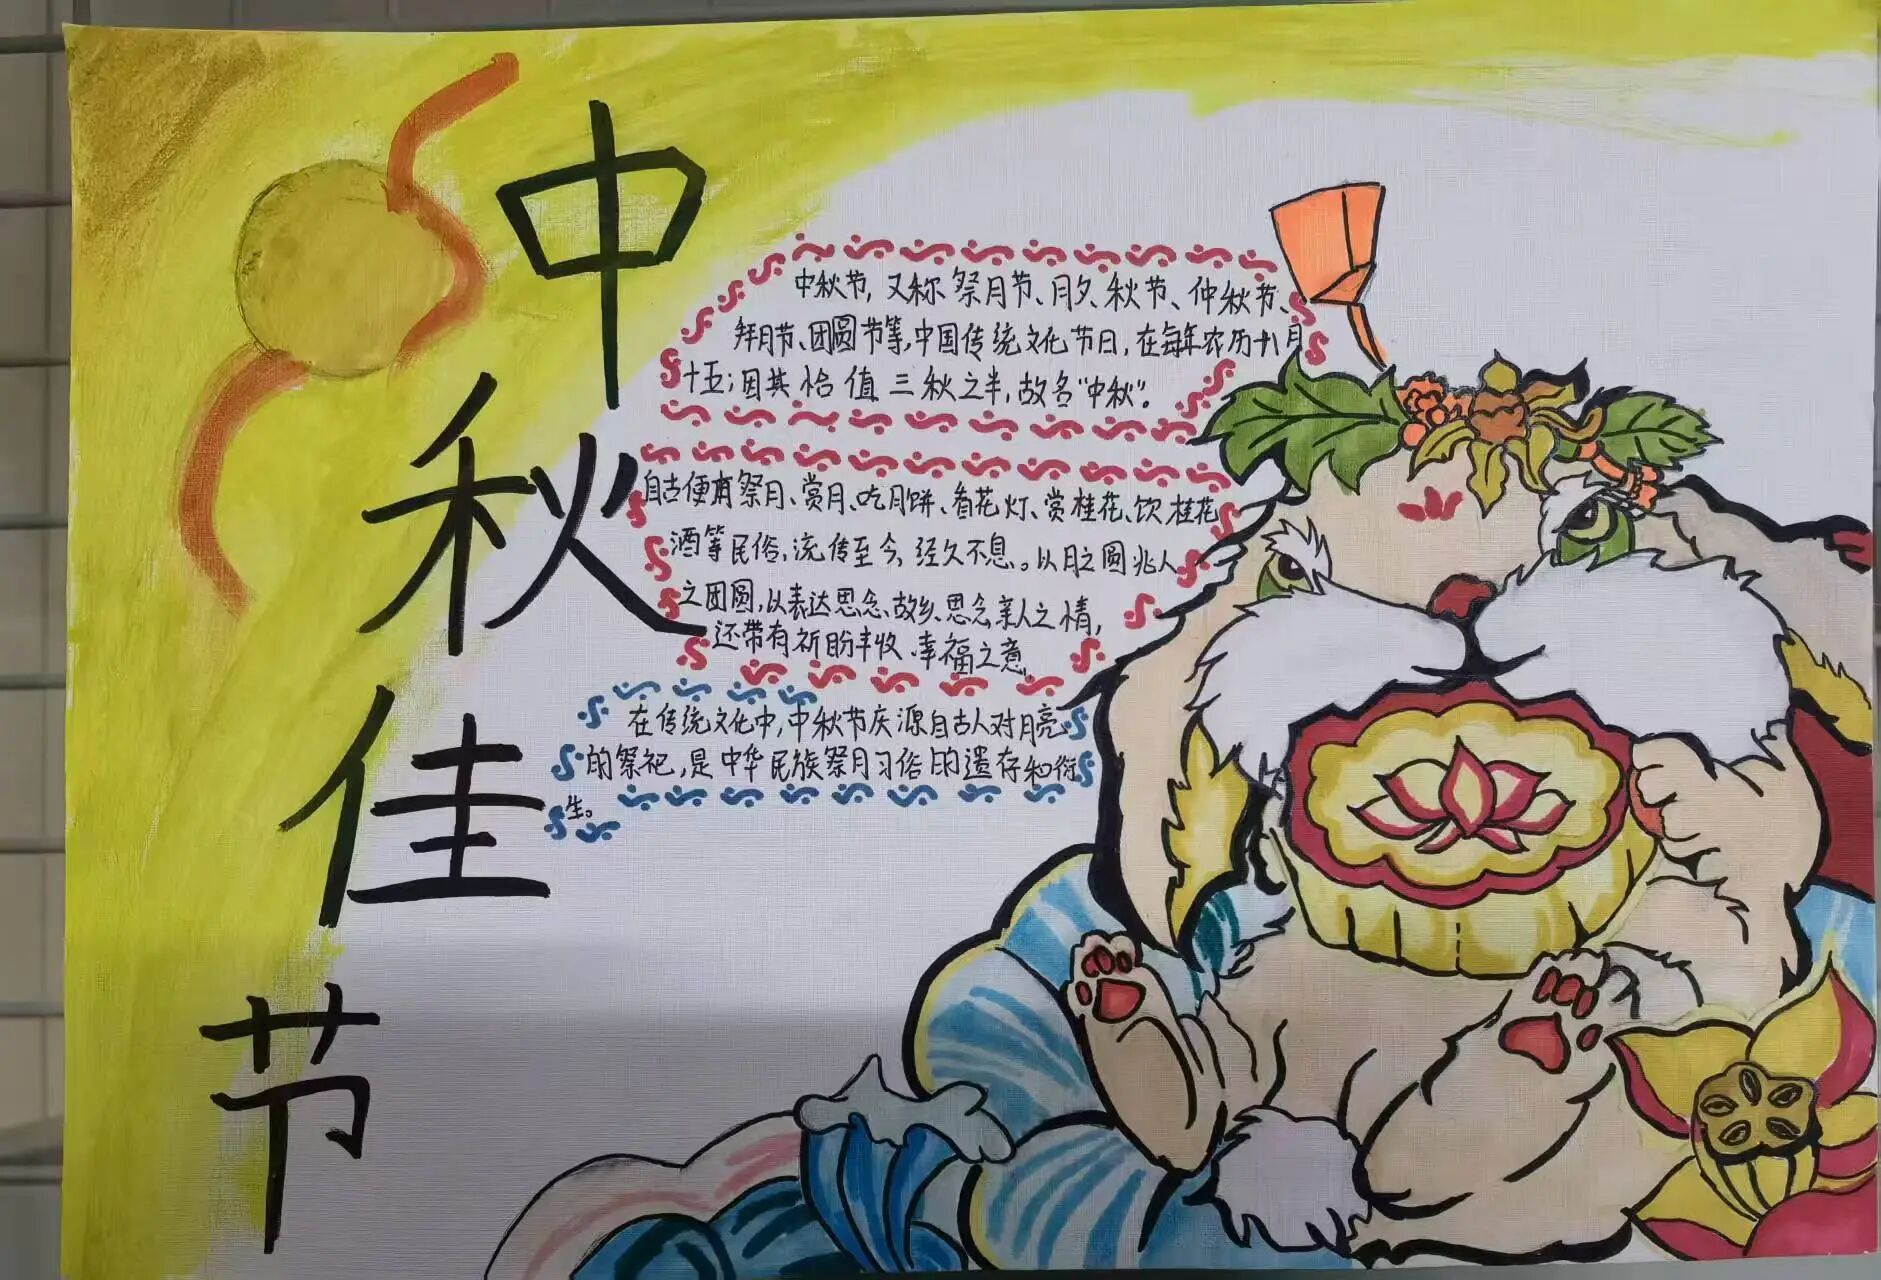 中秋佳节
中秋节,又称祭月节、月夕、秋节、仲秋节、
拜月节、团圆节等,中国传统文化节日,在每年农历八月
十五;因其恰值三秋之半,故名"中秋"。
自古便有祭月、赏月、吃月饼、看花灯、赏桂花、饮桂花
酒等民俗,流传至今,经久不息。以月之圆兆人
之团圆,以表达思念、故乡、思念亲人之情,
还带有祈盼丰收、幸福之意。
在传统文化中,中秋节庆源自古人对月亮
的祭祀,是中华民族祭月习俗的遗存和衍
生。